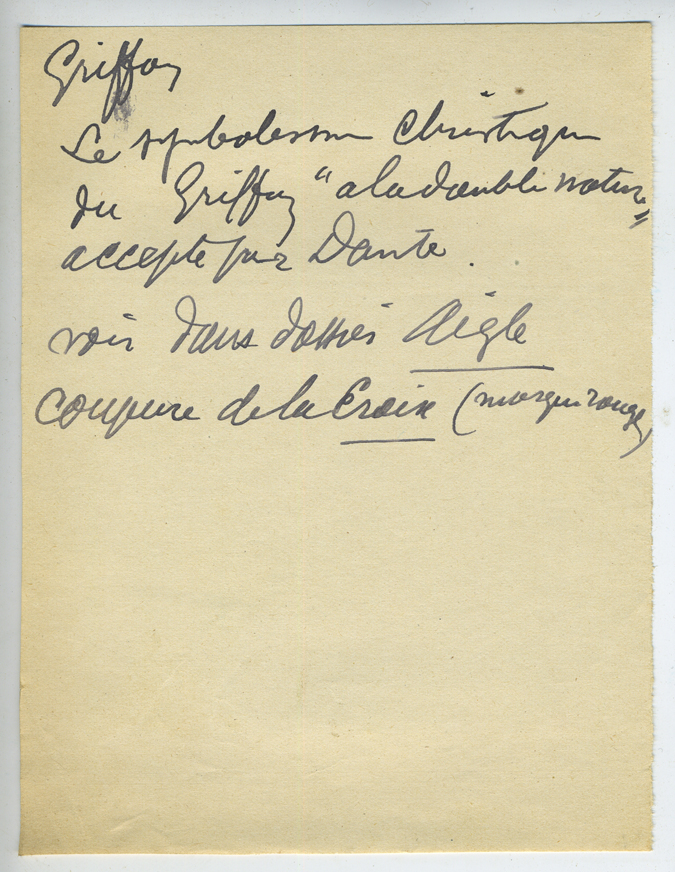 Griffon
Le symbolisme Christique
du Griffon "a la double nature"
accepté par Dante.
voir dans dossier Aigle
coupure de la Croix (marque rouge)